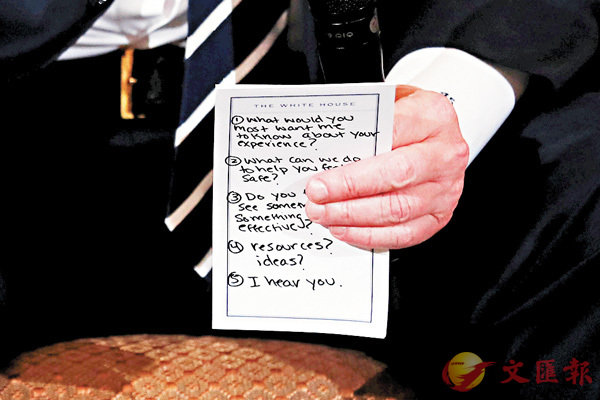 THE WHITE HOUSE
① What would you
most want me
to know about your
experience?
② What can we do
to help you
safe?
③ Do you
see
Something
effective?
④ resources?
ideas?
⑤ I hear you.
文匯報